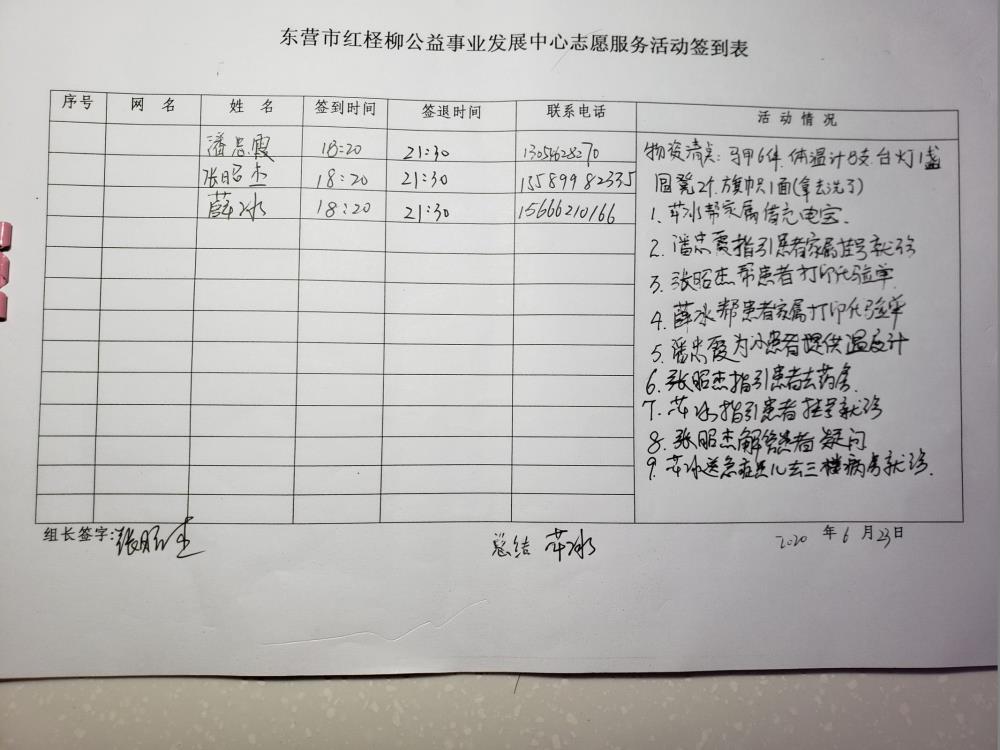 东营市红柽柳公益事业发展中心志愿服务活动签到表
序号 网 名 姓 名 签到时间 签退时间 联系电话 活动情况
潘忠霞 18:20 21:30
张昭杰 18:20 21:30 15589982335
薛冰 18:20 21:30 15666210166
物资清点:马甲6件.体温计8支.台灯1盏
圆凳2个.旗帜1面(拿去洗了)
1.薛冰帮家属借充电宝.
2.潘忠霞指引患者家属挂号就诊
3.张昭杰帮患者打印化验单
4.薛冰帮患者家属打印化验单
5.潘忠霞为患者提供温度计
6.张昭杰指引患者去药房.
7.薛冰指引患者挂号就诊
8.张昭杰解答患者疑问
9.薛冰送急症患儿去三楼病房就诊.
组长签字:张昭杰 总结 薛冰 2020 年 6 月 23日